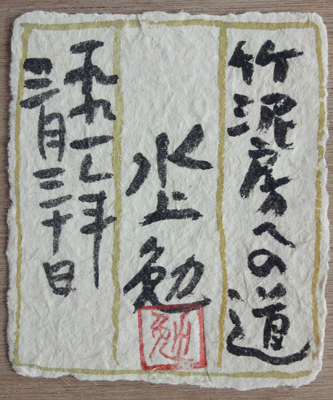 竹泥房への道
水上勉
勉
一九九七年
三月三十日